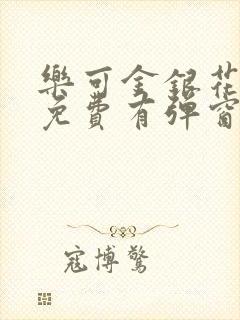 樂可金銀花
免費有彈窗
寇博驚